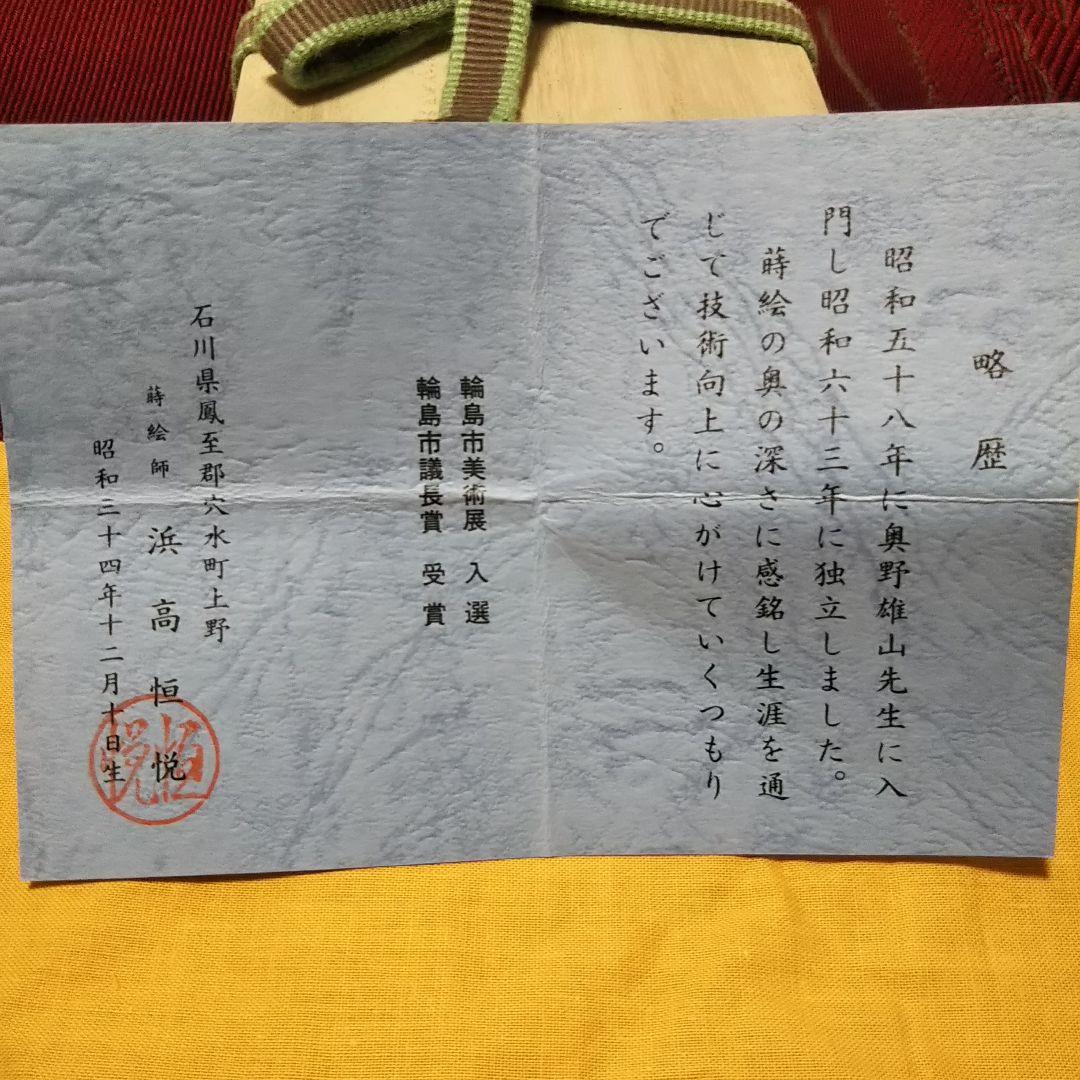 略歴
昭和五十八年に奥野雄山先生に入
門し昭和六十三年に独立しました。
蒔絵の奥の深さに感銘し生涯を通
じて技術向上に心がけていくつもり
でございます。
輪島市美術展 入選
輪島市議長賞 受賞
石川県鳳至郡穴水町上野
蒔絵師 浜高恒悦
昭和三十四年十二月十日生
恒悦